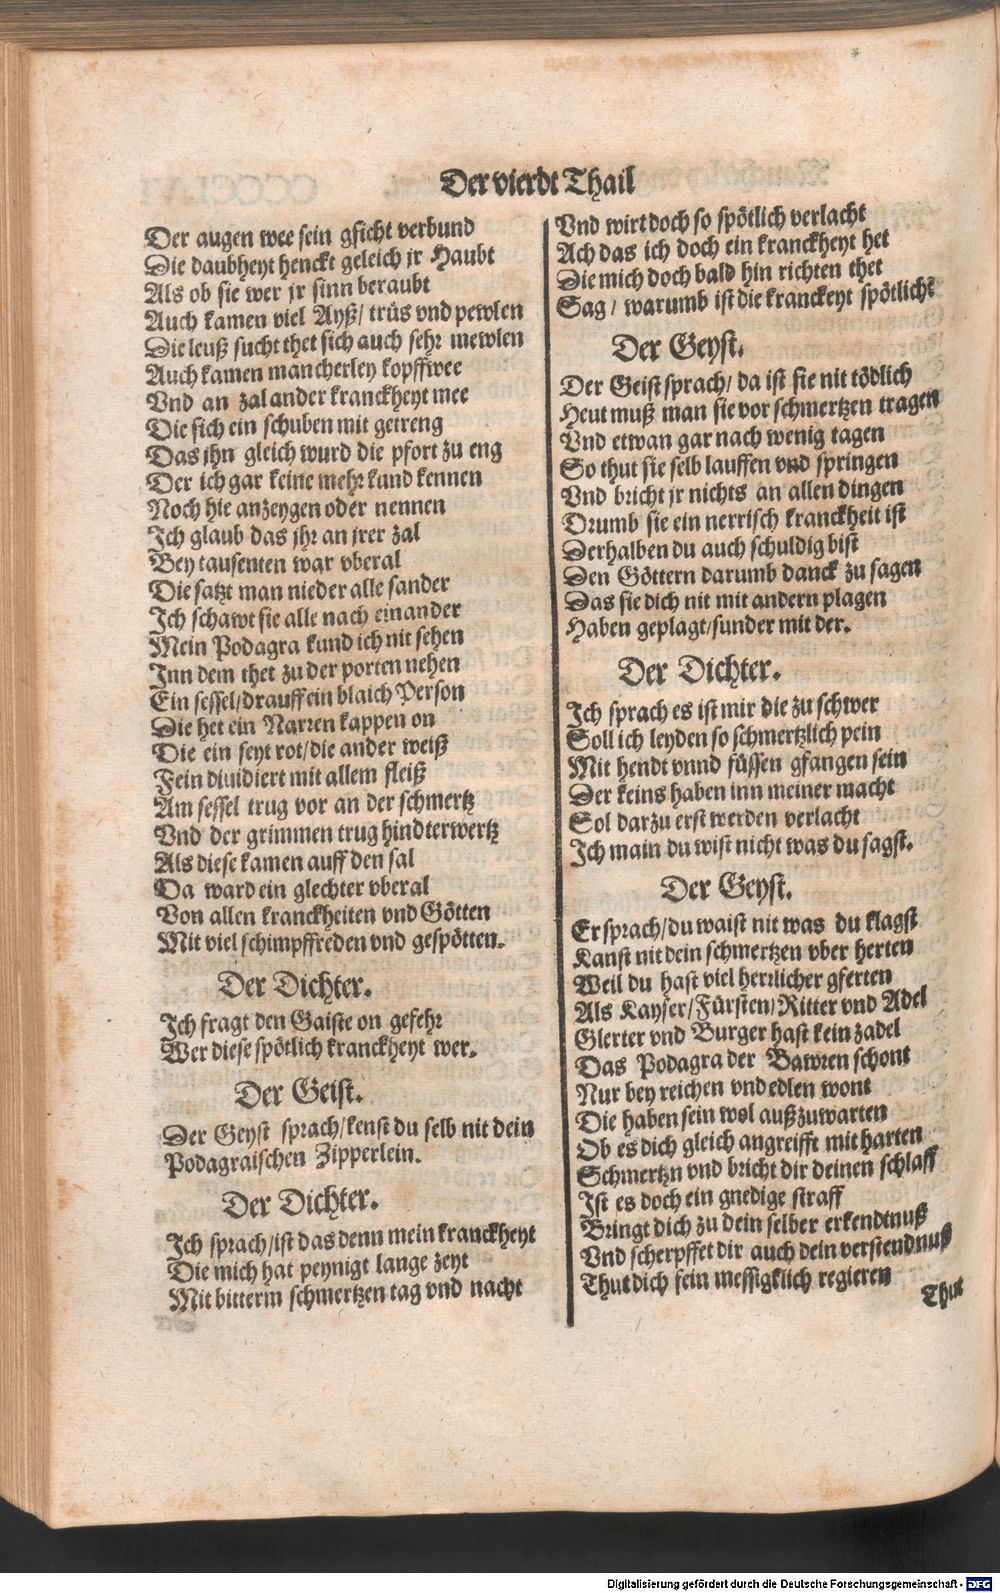 Der vierdt Thail
Der augen wee sein gsicht verbund
Die daubheyt henckt geleich jr Haubt
Als ob sie wer jr sinn beraubt
Auch kamen viel Ayß/ trüs vnd pewlen
Die leuß sucht thet sich auch sehr mewlen
Auch kamen mancherley kopffwee
Vnd an zal ander kranckheyt mee
Die sich ein schuben mit getreng
Das jhn gleich wurd die pfort zu eng
Der ich gar keine mehr kund kennen
Noch hie anzeygen oder nennen
Ich glaub das jhr an jrer zal
Bey tausenten war vberal
Die satzt man nieder alle sander
Ich schawt sie alle nach einander
Mein Podagra kund ich nit sehen
Inn dem thet zu der porten nehen
Ein sessel/drauff ein blaich Person
Die het ein Narren kappen on
Die ein seyt rot/die ander weiß
Fein dividiert mit allem fleiß
Am sessel trug vor an der schmertz
Vnd der grimmen trug hindterwertz
Als diese kamen auff den sal
Da ward ein glechter vberal
Von allen kranckheiten vnd Götten
Mit viel schimpffreden vnd gespötten.
Der Dichter.
Ich fragt den Gaiste on gefehr
Wer diese spötlich kranckheyt wer.
Der Geist.
Der Geyst sprach/kenst du selb nit dein
Podagraischen Zipperlein.
Der Dichter.
Ich sprach/ist das denn mein kranckheyt
Die mich hat peynigt lange zeyt
Mit bitterm schmertzen tag vnd nacht
Vnd wirt doch so spötlich verlacht
Ach das ich doch ein kranckheyt het
Die mich doch bald hin richten thet
Sag/ warumb ist die kranckeyt spötlichẽ
Der Geyst.
Der Geist sprach/ da ist sie nit tödlich
Heut muß man sie vor schmertzen tragen
Vnd etwan gar nach wenig tagen
So thut sie selb lauffen vnd springen
Vnd bricht jr nichts an allen dingen
Drumb sie ein nerrisch kranckheit ist
Derhalben du auch schuldig bist
Den Göttern darumb danck zu sagen
Das sie dich nit mit andern plagen
Haben geplagt/sunder mit der.
Der Dichter.
Ich sprach es ist mir die zu schwer
Soll ich leyden so schmertzlich pein
Mit hendt vnnd füssen gfangen sein
Der keins haben inn meiner macht
Sol darzu erst werden verlacht
Ich main du wist nicht was du sagst.
Der Geyst.
Er sprach/du waist nit was du klagst
Kanst nit dein schmertzen vber herten
Weil du hast viel herrlicher gferten
Als Kayser/Fürsten/Ritter vnd Adel
Glerter vnd Burger hast kein zadel
Das Podagra der Bawren schont
Nur bey reichen vnd edlen wont
Die haben sein wol außzuwarten
Ob es dich gleich angreifft mit harten
Schmertzn vnd bricht dir deinen schlaff
Ist es doch ein gnedige straff
Bringt dich zu dein selber erkendtnuß
Vnd scherpffet dir auch dein verstendnuß
Thut dich fein messigklich regieren
Thut
Digitalisierung gefördert durch die Deutsche Forschungsgemeinschaft - DFG